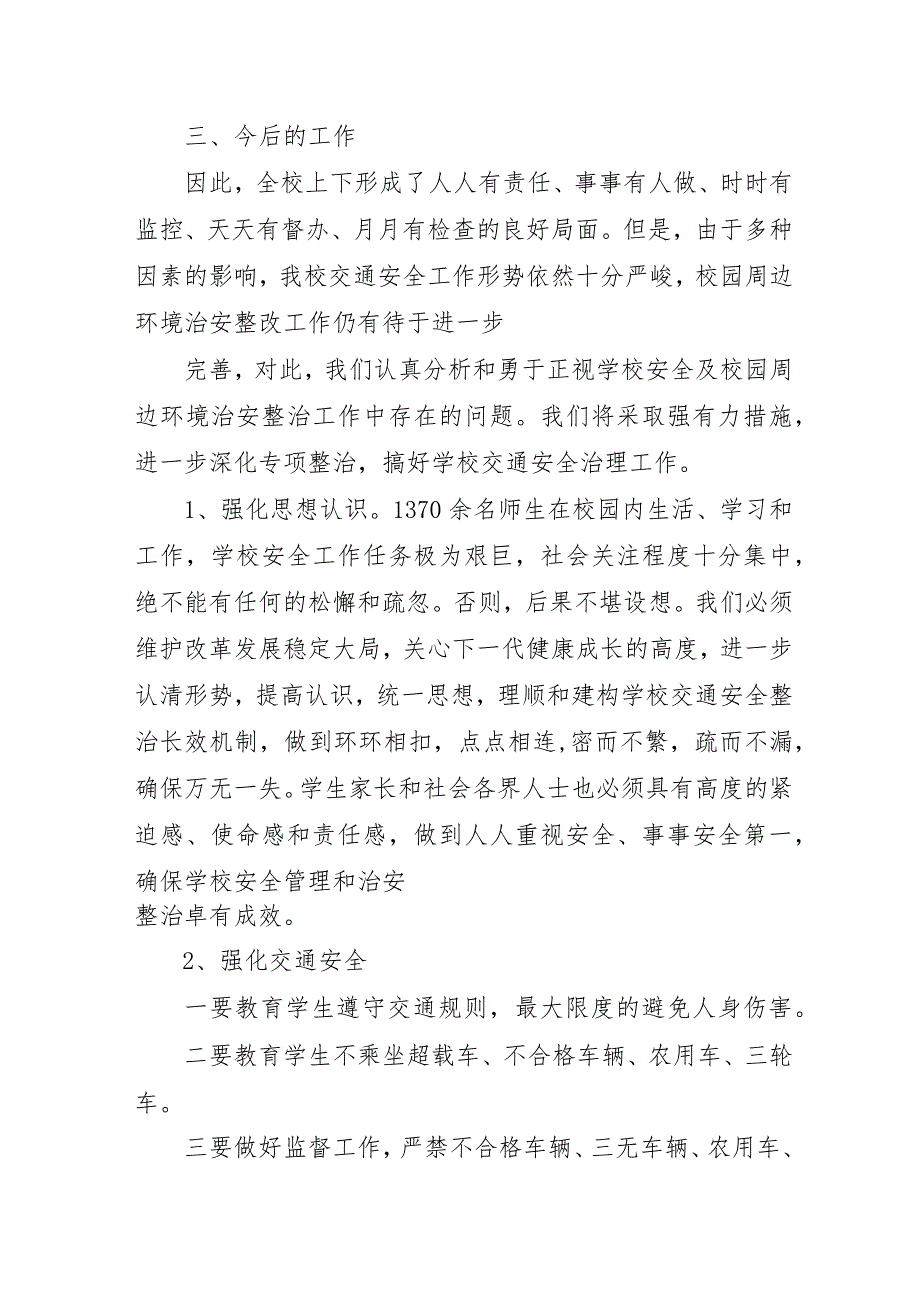 三、今后的工作
因此，全校上下形成了人人有责任、事事有人做、时时有
监控、天天有督办、月月有检查的良好局面。但是，由于多种
因素的影响，我校交通安全工作形势依然十分严峻，校园周边
环境治安整改工作仍有待于进一步
完善，对此，我们认真分析和勇于正视学校安全及校园周
边环境治安整治工作中存在的问题。我们将采取强有力措施，
进一步深化专项整治，搞好学校交通安全治理工作。
1、强化思想认识。1370 余名师生在校园内生活、学习和
工作，学校安全工作任务极为艰巨，社会关注程度十分集中，
绝不能有任何的松懈和疏忽。否则，后果不堪设想。我们必须
维护改革发展稳定大局，关心下一代健康成长的高度，进一步
认清形势，提高认识，统一思想，理顺和建构学校交通安全整
治长效机制，做到环环相扣，点点相连,密而不繁，疏而不漏，
确保万无一失。学生家长和社会各界人士也必须具有高度的紧
迫感、使命感和责任感，做到人人重视安全、事事安全第一，
确保学校安全管理和治安
整治卓有成效。
2、强化交通安全
一要教育学生遵守交通规则，最大限度的避免人身伤害。
二要教育学生不乘坐超载车、不合格车辆、农用车、三轮
车。
三要做好监督工作，严禁不合格车辆、三无车辆、农用车、